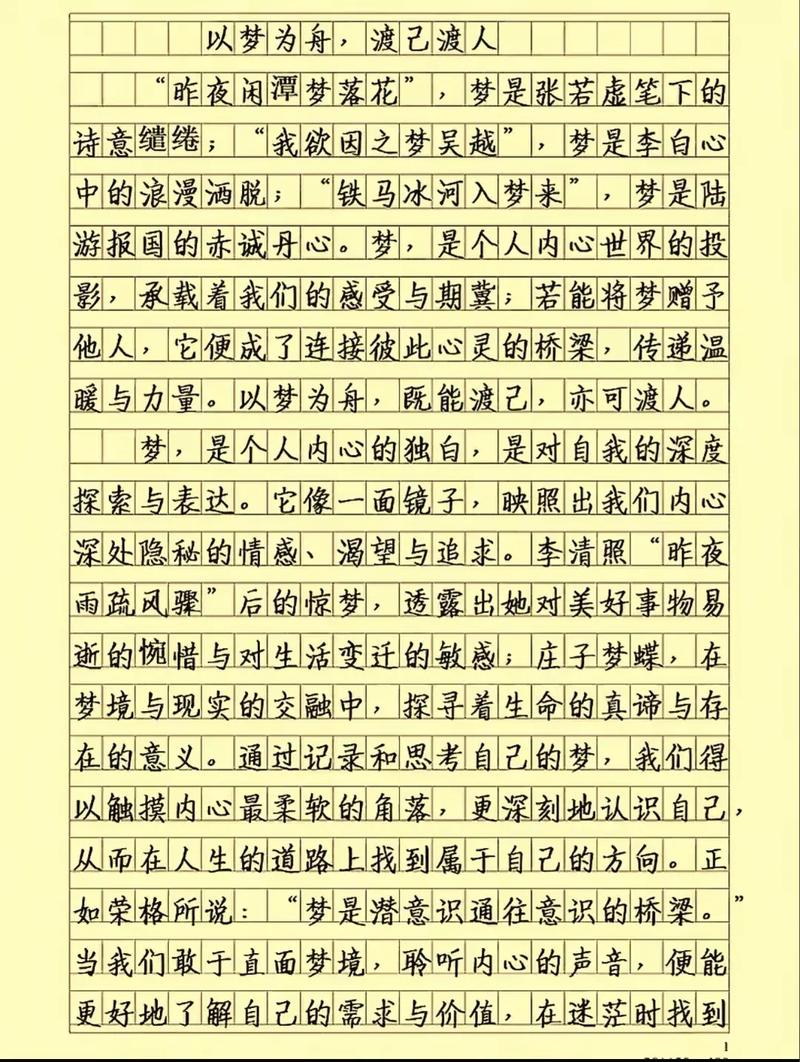 以梦为舟，渡己渡人
“昨夜闲潭梦落花”，梦是张若虚笔下的
诗意缱绻；“我欲因之梦吴越”，梦是李白心
中的浪漫洒脱；“铁马冰河入梦来”，梦是陆
游报国的赤诚丹心。梦，是个人内心世界的投
影，承载着我们的感受与期冀；若能将梦赠予
他人，它便成了连接彼此心灵的桥梁，传递温
暖与力量。以梦为舟，既能渡己，亦可渡人。
梦，是个人内心的独白，是对自我的深度
探索与表达。它像一面镜子，映照出我们内心
深处隐秘的情感、渴望与追求。李清照“昨夜
雨疏风骤”后的惊梦，透露出她对美好事物易
逝的惋惜与对生活变迁的敏感；庄子梦蝶，在
梦境与现实的交融中，探寻着生命的真谛与存
在的意义。通过记录和思考自己的梦，我们得
以触摸内心最柔软的角落，更深刻地认识自己，
从而在人生的道路上找到属于自己的方向。正
如荣格所说：“梦是潜意识通往意识的桥梁。”
当我们敢于直面梦境，聆听内心的声音，便能
更好地了解自己的需求与价值，在迷茫时找到
1